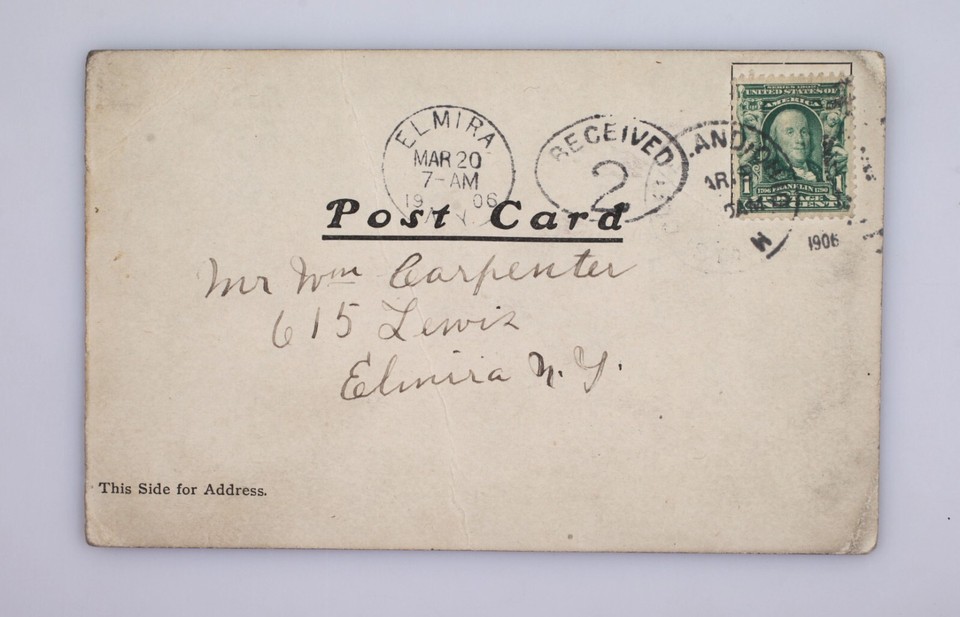 ELMIRA
MAR 20
7-AM
19 06
N.Y.
RECEIVED
2
SERIES 1902
UNITED STATES OF
AMERICA
1 1706 FRANKLIN 1790 1
POSTAGE
ONE CENT
LAND, O
AR.
1906
Post Card
Mr Wm Carpenter
615 Lewis
Elmira N.Y.
This Side for Address.